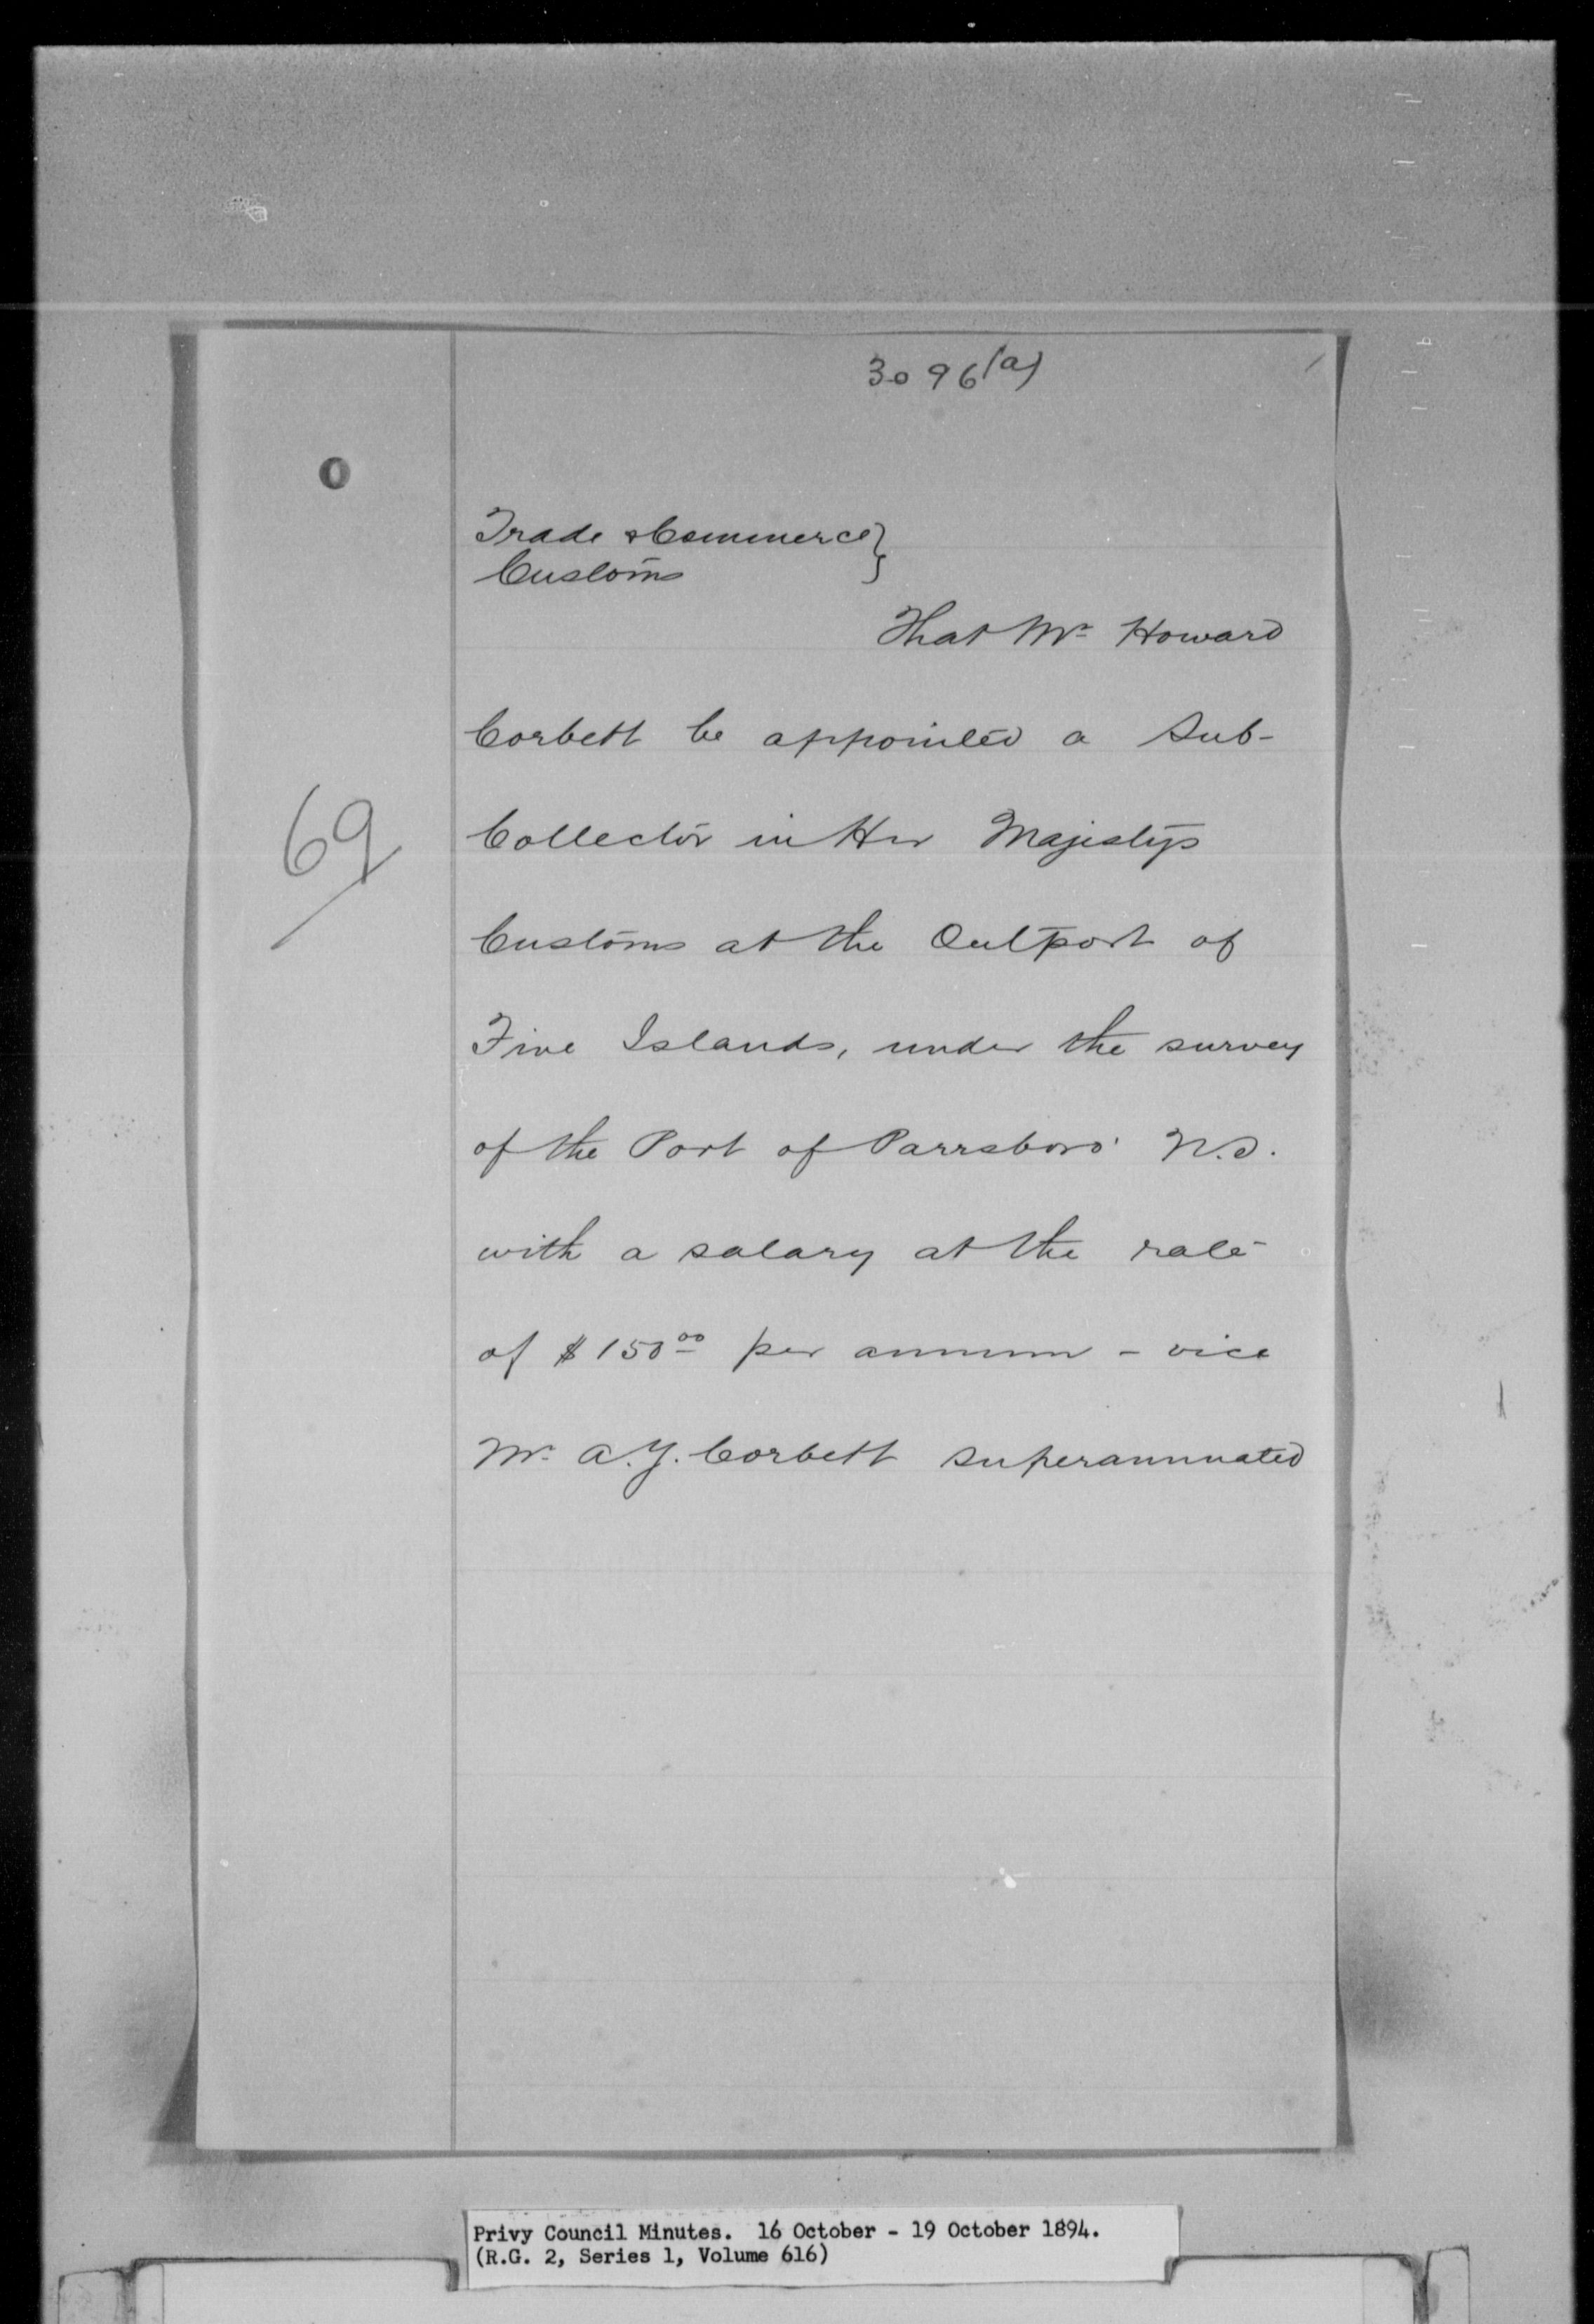 3096(a)
Trade & Commerce }
Customs
That Mr Howard
Corbett be appointed a Sub-
69
Collector in Her Majestys
Customs at the Outport of
Five Islands, under the survey
of the Port of Parrsboro' N.S.
with a salary at the rate
of $150.00 per annum - vice
Mr. A.Y. Corbett superannuated
Privy Council Minutes. 16 October - 19 October 1894.
(R.G. 2, Series 1, Volume 616)